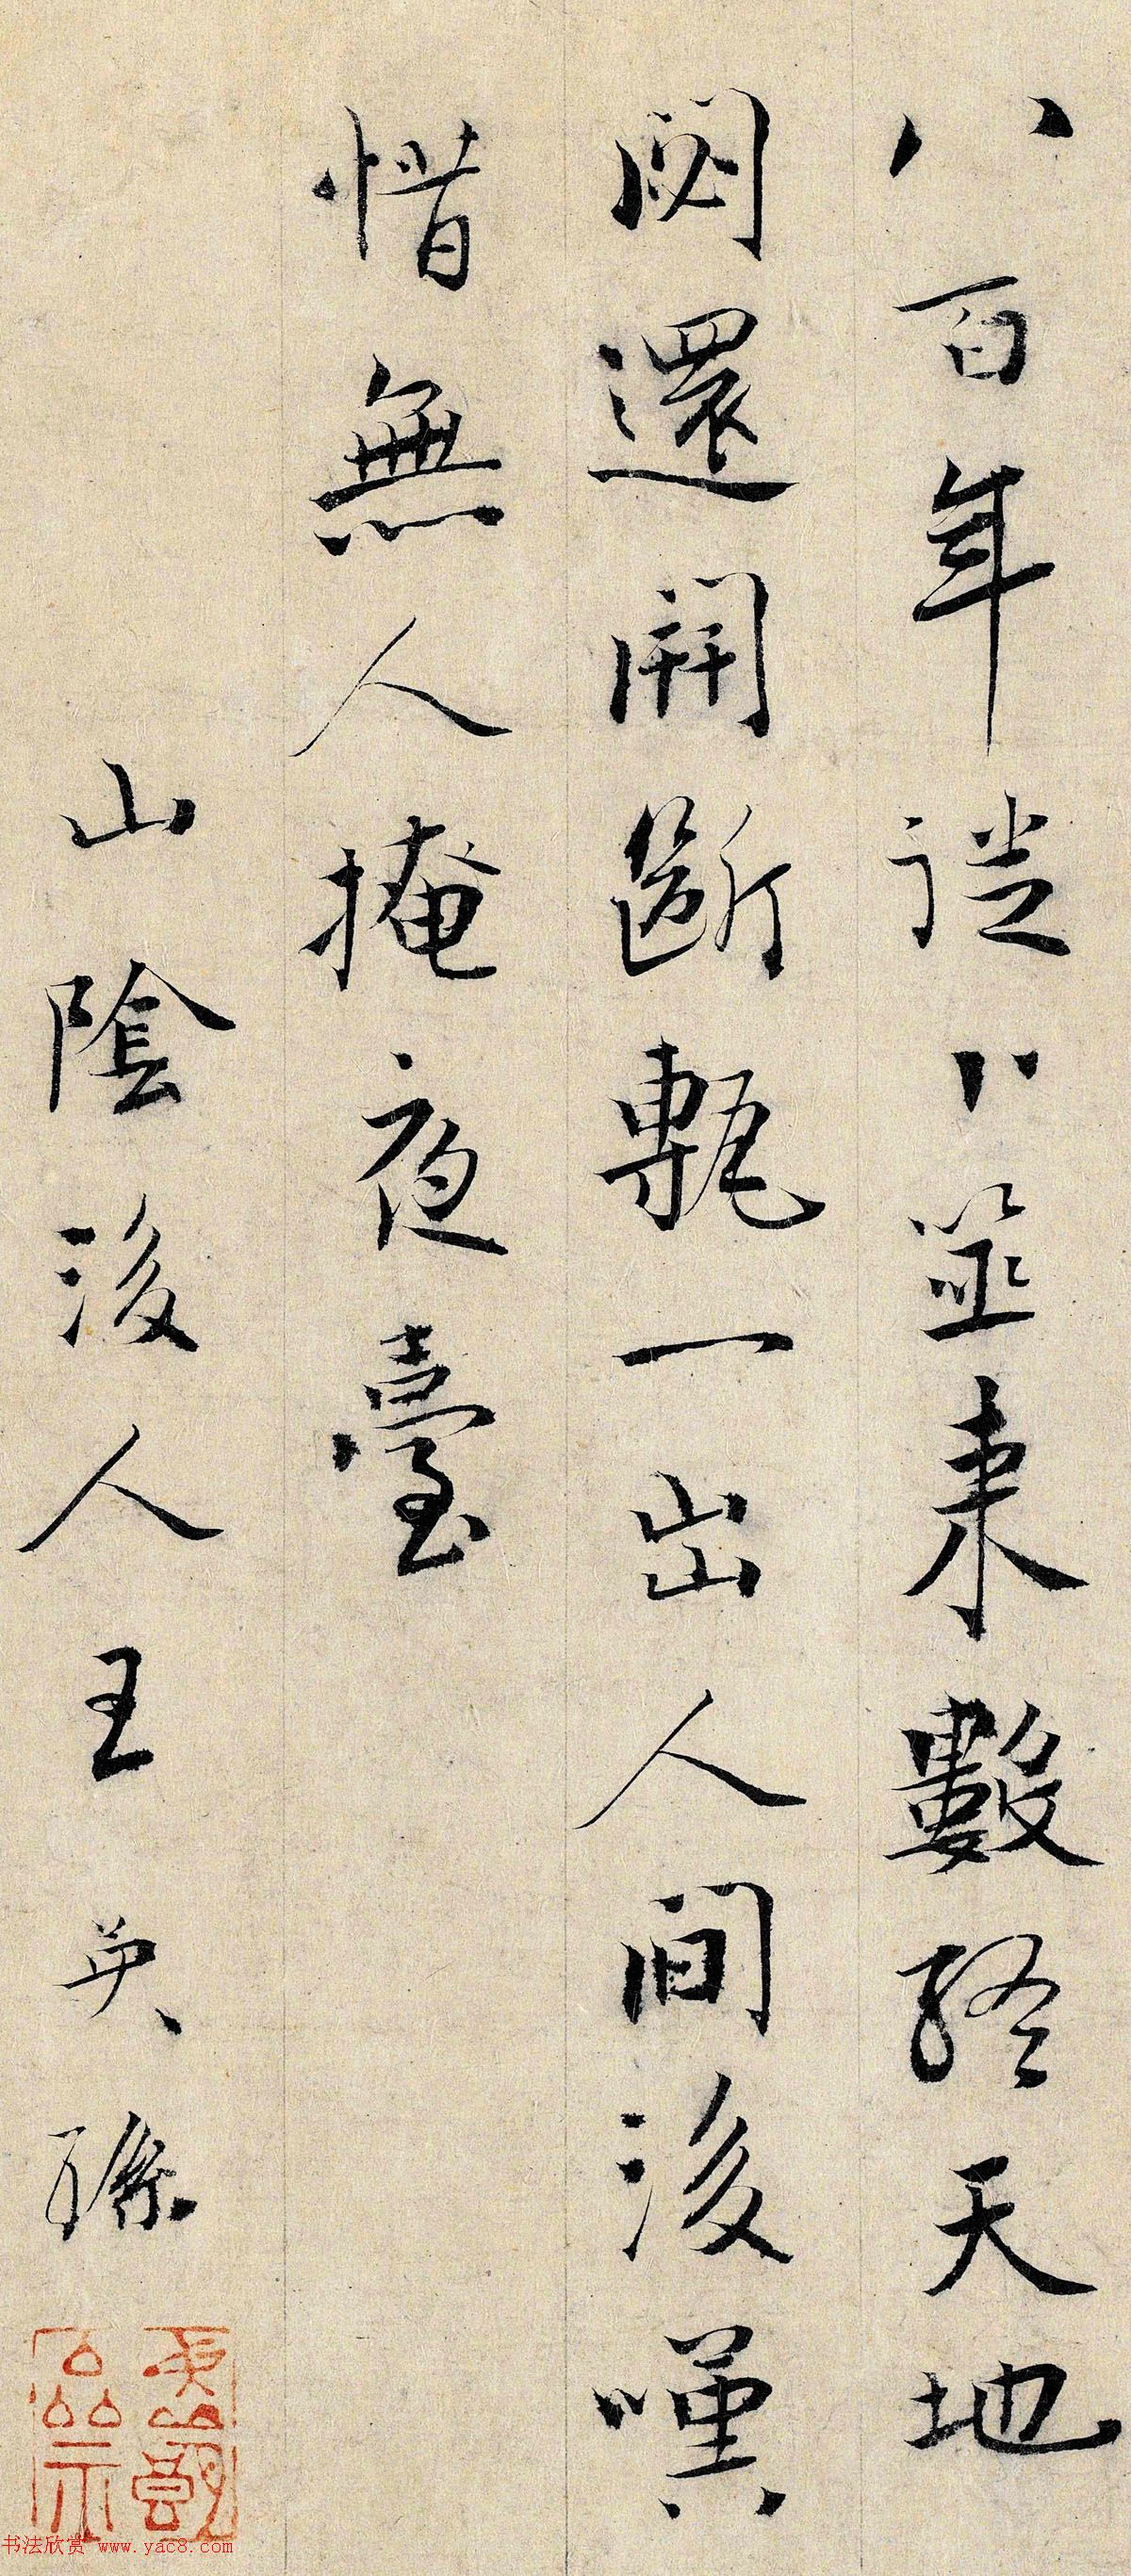 八百年從卜筮來數終天地
閟還開斷甎一出人間後嘆
惜無人掩夜臺
山陰後人王英孫
书法欣赏 www.yac8.com